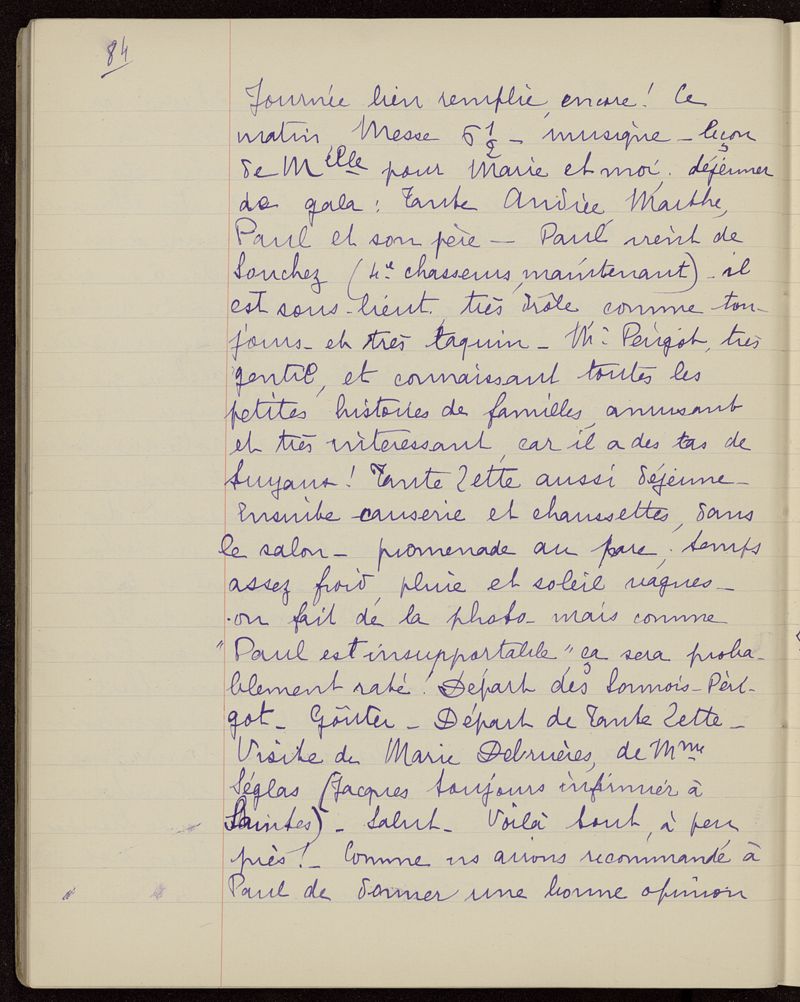 84
Journée bien remplie, encore ! Ce
matin, Messe 6 1/2 - musique - leçon
de Melle pour Marie et moi. déjeuner
de gala : Tante Andrée, Marthe,
Paul et son père — Paul vient de
Souchez (4e chasseurs, maintenant) - il
est sous-lieut., très drôle comme tou-
jours - et très taquin - Mr Périgot, très
gentil, et connaissant toutes les
petites histoires de familles, amusant
et très intéressant, car il a des tas de
tuyaux ! Tante Zette aussi déjeune -
Ensuite causerie et chaussettes, dans
le salon - promenade au parc ; temps
assez froid, pluie et soleil vagues -
on fait de la photo - mais comme
"Paul est insupportable" ça sera proba-
blement raté ! Départ des Sormois-Péri-
got - Goûter - Départ de Tante Zette -
Visite de Marie Debruères, de Mme
Séglas (Jacques toujours infirmier à
Saintes) - Salut - Voilà tout, à peu
près ! - Comme ns avions recommandé à
Paul de donner une bonne opinion